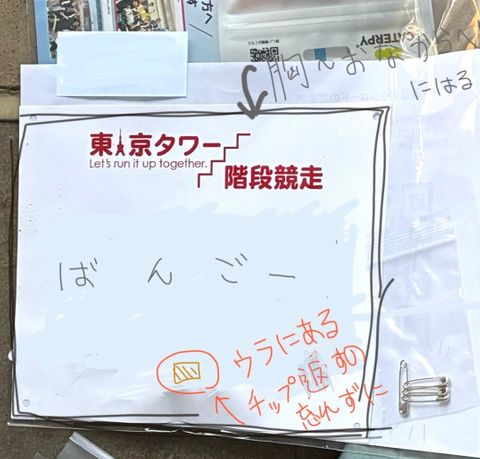 方へ
CATERPY
胸〜おなからへ
にはる
東京タワー
Let's run it up together.
階段競走
ばんごー
ウラにある
チップ返すの
忘れずに